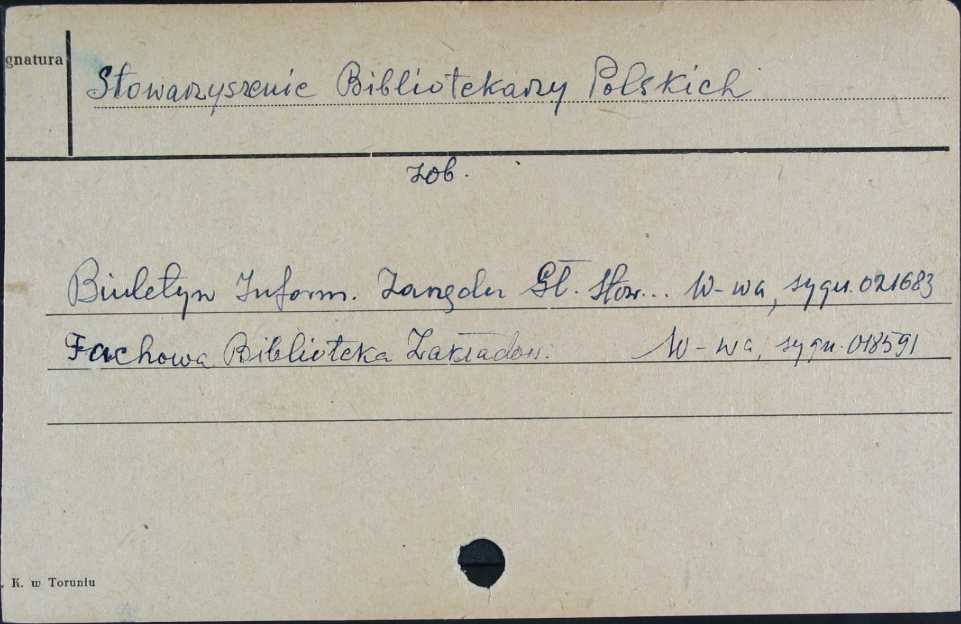 gnatura
Stowarzyszenie Bibliotekarzy Polskich
zob.
Biuletyn Inform. Zarządu Gł. Stow... W-wa, sygn. 021683
Fachowa Biblioteka Zakładow. W-wa, sygn. 018591
. K. w Toruniu